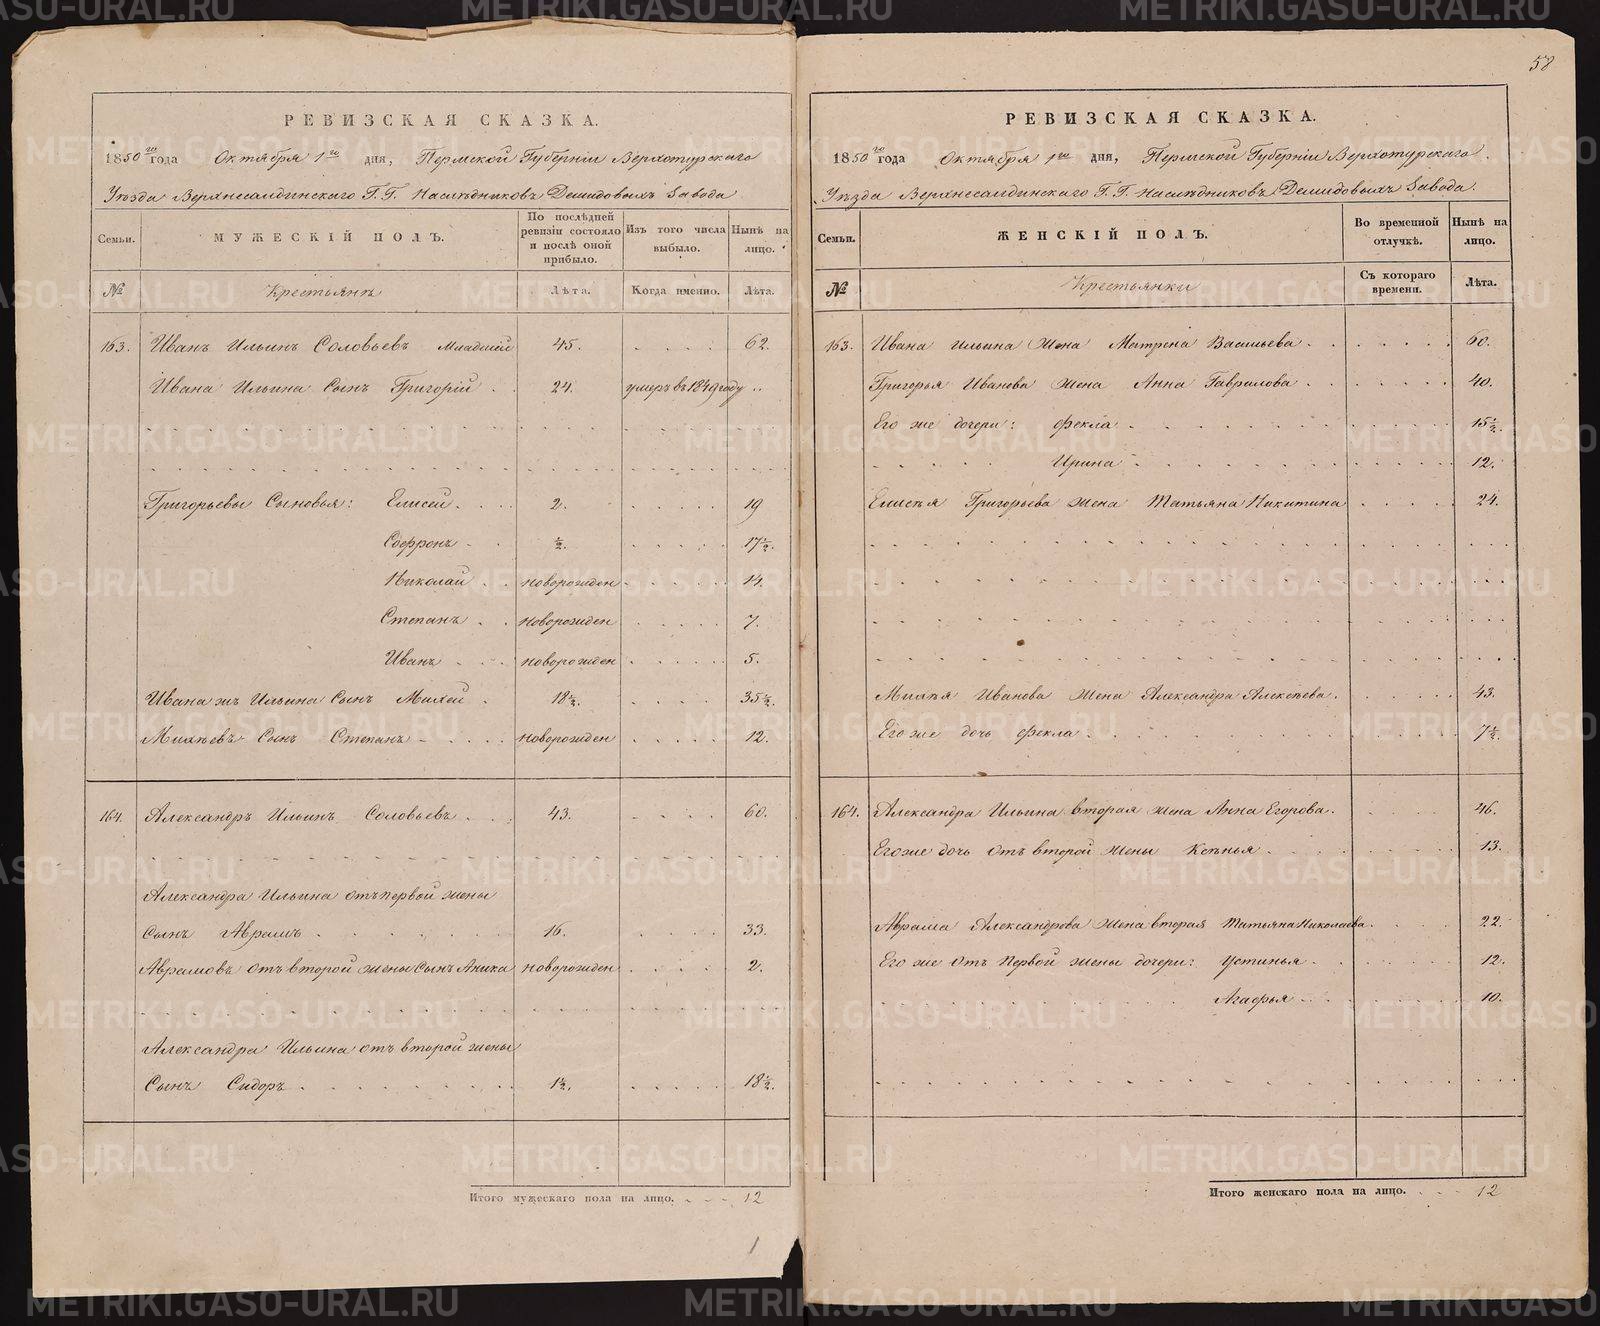 РЕВИЗСКАЯ СКАЗКА.
1850го года Октября 1го дня, Пермской Губерніи Верхотурскаго
Уѣзда Верхнесалдинскаго Г.Г. Наслѣдниковъ Демидовыхъ Завода
Семьи. МУЖЕСКІЙ ПОЛЪ. По послѣдней ревизіи состояло и послѣ оной прибыло. Изъ того числа выбыло. Нынѣ на лицо.
№ Крестьянъ Лѣта. Когда именно. Лѣта.
163. Иванъ Ильинъ Соловьевъ Младшій 45. 62.
Ивана Ильина Сынъ Григорій 24. умеръ въ 1849 году
Григорьевы Сыновья: Елисей 2. 19
Софронъ ½. 17½.
Николай новорожден 14.
Степанъ новорожден 7.
Иванъ новорожден 5.
Ивана жъ Ильина Сынъ Михей 18½. 35½.
Михѣевъ Сынъ Степанъ новорожден 12.
164. Александръ Ильинъ Соловьевъ 43. 60.
Александра Ильина отъ первой жены
Сынъ Аврамъ 16. 33.
Аврамовъ отъ второй жены Сынъ Аника новорожден 2.
Александра Ильина отъ второй жены
Сынъ Сидоръ 1½. 18½.
Итого мужескаго пола на лицо. 12
1
58
РЕВИЗСКАЯ СКАЗКА.
1850го года Октября 1го дня, Пермской Губерніи Верхотурскаго
Уѣзда Верхнесалдинскаго Г.Г. Наслѣдниковъ Демидовыхъ Завода.
Семьи. ЖЕНСКІЙ ПОЛЪ. Во временной отлучкѣ. Нынѣ на лицо.
№ Крестьянки Съ котораго времени. Лѣта.
163. Ивана Ильина жена Матрена Васильева 60.
Григорья Иванова жена Анна Гаврилова 40.
Его же дочери: Фекла 15½.
Ирина 12.
Елисѣя Григорьева жена Татьяна Никитина 24.
Михѣя Иванова жена Александра Алексѣева 43.
Его же дочь Фекла 7½.
164. Александра Ильина вторая жена Анна Егорова. 46.
Его же дочь отъ второй жены Ксѣнья 13.
Аврама Александрова жена вторая Татьяна Николаева 22.
Его же отъ первой жены дочери: Устинья 12.
Агафья 10.
Итого женскаго пола на лицо. 12
METRIKI.GASO-URAL.RU